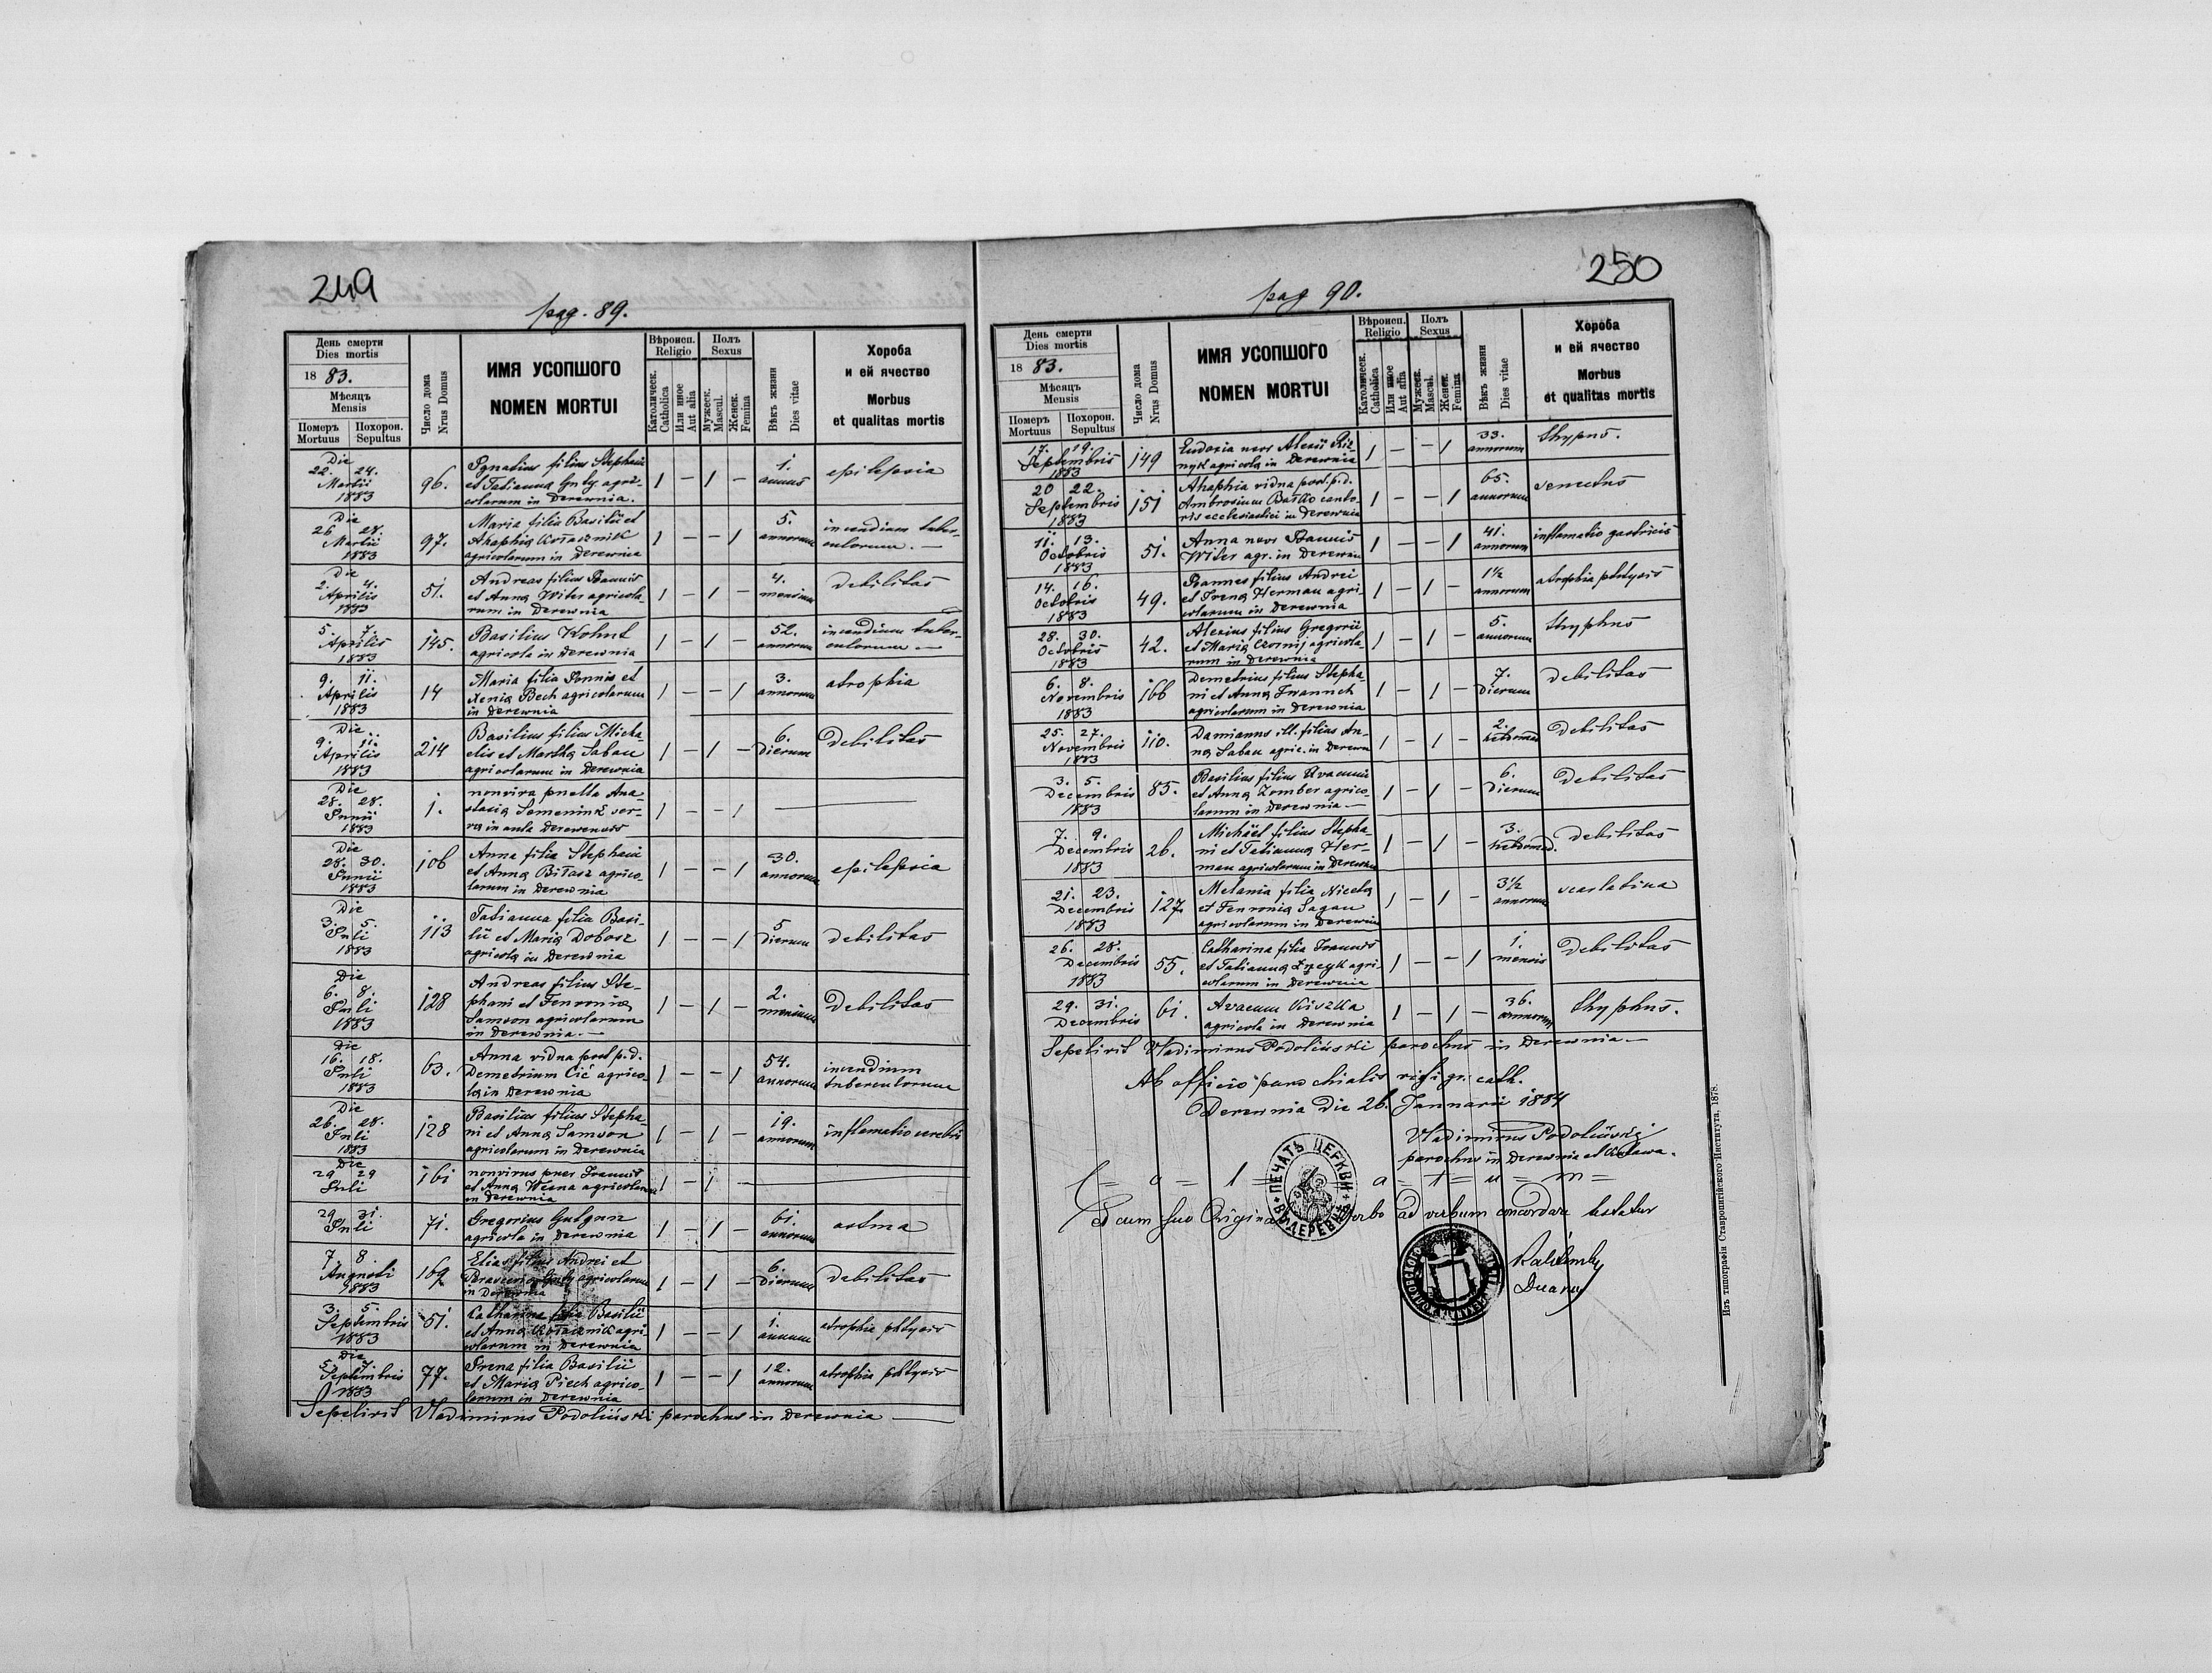 249
pag. 89.
День смерти
Dies mortis
18 83.
Мѣсяцъ
Mensis
Померъ Похорон.
Mortuus Sepultus
Число дома
Nrus Domus
ИМЯ УСОПШОГО
NOMEN MORTUI
Вѣроисп.
Religio
Католическ.
Catholica
Или иное
Aut alia
Полъ
Sexus
Мужеск.
Mascul.
Женск.
Femina
Вѣкъ жизни
Dies vitae
Хороба
и ей ячество
Morbus
et qualitas mortis
Die
22. 24.
Martii
1883
96.
Ignatius filius Stephani
et Tatianna Huty agri-
colarum in Derewnia.
1 — 1 —
1.
annus
epilepsia
Die
26 28.
Martii
1883
97.
Maria filia Basilii et
Ahaphia Kołacznik
agricolarum in Derewnia
1 — — 1
5.
annorum
incendium tuber-
culorum. —
Die
2. 4.
Aprilis
1883
51.
Andreas filius Ioannis
et Anna Witer agricola-
rum in Derewnia
1 — 1 —
4.
mensium
debilitas
5. 7.
Aprilis
1883
145.
Basilius Kohut
agricola in Derewnia
1 — 1 —
52.
annorum
incendium tuber-
culorum —
9. 11.
Aprilis
1883
14
Maria filia Ioannis et
Xenia Bech agricolarum
in Derewnia
1 — — 1
3.
annorum
atrophia
Die
9. 11.
Aprilis
1883
214
Basilius filius Micha
elis et Martha Saban
agricolarum in Derewnia
1 — 1 —
6.
Dierum
Debilitas
Die
28. 28.
Junii
1883
1.
nonviva puella Ana-
stasia Semeniuk ser-
va in aula
1 — — 1
Die
28. 30.
Junii
1883
106
Anna filia Stephani
et Anna Biłasz agrico-
larum in Derewnia
1 — — 1
30.
annorum
epilepsia
Die
3. 5.
Juli
1883
113
Tatianna filia Basi-
lii et Maria Dobosz
agricola in Derewnia
1 — — 1
5
Dierum
debilitas
Die
6. 8.
Juli
1883
128
Andreas filius Ste-
phani et Fenronia
Samson agricolarum
in Derewnia. —
1 — 1 —
2.
mensium
Debilitas
Die
16. 18.
Juli
1883
63.
Anna vidua post p. d.
Demetrium Cić agrico-
la in Derewnia
1 — — 1
54.
annorum
incendium
tuberculorum
Die
26. 28.
Juli
1883
128
Basilius filius Stepha-
ni et Anna Samson
agricolarum in Derewnia
1 — 1 —
19.
annorum
inflamatio cerebri
Die
29 29
Juli
161
nonvivus puer Ioannis
et Anna Wesna agricolarum
in Derewnia
1 — 1
29 31.
Juli
71.
Gregorius
agricola in Derewnia
1 — 1 —
61.
annorum
astma
7 8
Augusti
1883
169
Elias filius Andrei et
Parascevia Huty agricolarum
in Derewnia
1 — 1 —
6.
Dierum
debilitas
3. 5.
Septembris
1883
51.
Catharina filia Basilii
et Anna Kołacznik agri-
colarum in Derewnia
1 — — 1
1.
annum
atrophia phtysis
Die
5. 7.
Septembris
1883
77.
Irena filia Basilii
et Maria Piech agrico-
larum in Derewnia
1 — — 1
12.
annorum
atrophia phtysis
Sepelivit Vladimirus Podoliński parochus in Derewnia
250
pag 90.
День смерти
Dies mortis
18 83.
Мѣсяцъ
Mensis
Померъ Похорон.
Mortuus Sepultus
Число дома
Nrus Domus
ИМЯ УСОПШОГО
NOMEN MORTUI
Вѣроисп.
Religio
Католическ.
Catholica
Или иное
Aut alia
Полъ
Sexus
Мужеск.
Mascul.
Женск.
Femina
Вѣкъ жизни
Dies vitae
Хороба
и ей ячество
Morbus
et qualitas mortis
17. 19.
Septembris
1883
149
Eudoxia uxor Alexii Riz-
nyk agricola in Derewnia
1 — — 1
33.
annorum
thypus.
20 22.
Septembris
1883
151
Ahaphia vidua post. p. d.
Ambrosium Baśko canto-
ris ecclesiastici in Derewnia
1 — — 1
65.
annorum
senectus
11. 13.
Octobris
1883
51.
Anna uxor Ioannis
Witer agr. in Derewnia
1 — — 1
41.
annorum
inflamatio gastricis
14. 16.
Octobris
1883
49.
Ioannes filius Andrei
et Irena Herman agri-
colarum in Derewnia
1 — 1 —
1½
annorum
atrophia phtysis
28. 30.
Octobris
1883
42.
Alexius filius Gregorii
et Maria Czornij agricola-
rum in Derewnia
1 — 1 —
5.
annorum
thyphus
6. 8.
Novembris
1883
166
Demetrius filius Stepha-
ni et Anna Iwanuch
agricolarum in Derewnia
1 — 1 —
7.
Dierum
debilitas
25. 27.
Novembris
1883
110.
Damianus ill. filius An-
na Saban agric. in Derewn
1 — 1 —
2.
hebdomad
Debilitas
3. 5.
Decembris
1883
85.
Basilius filius Avacumi
et Anna Zomber agrico-
larum in Derewnia —
1 — 1 —
6.
Dierum
Debilitas
7. 9.
Decembris
1883
26.
Michäel filius Stepha-
ni et Tatianna Her-
man agricolarum in Derewnia
1 — 1 —
3.
hebdomad.
debilitas
21. 23.
Decembris
1883
127.
Melania filia Niceta
et Fenronia Sagan
agricolarum in Derewnia
1 — 1 —
3½
annorum
scarlatina
26. 28.
Decembris
1883
55.
Catharina filia Ioannis
et Tatianna agri-
colarum in Derewnia
1 — — 1
1.
mensis
Debilitas
29. 31.
Decembris
61.
Avacum Kiszka
agricola in Derewnia
1 — 1 —
36.
annorum
thyphus.
Sepelivit Vladimirus Podoliński parochus in Derewnia —
Ab officio parochialis ritis gr. cath.
Derewnia die 26. Januarii 1884
Vladimirus Podoliński
parochus in Derewnia et
ПЕЧАТЬ ЦЕРКВИ ВЪ ДЕРЕВНѢ
cum suo Originali verbo ad verbum concordare testatur
Изъ типографіи Ставропигійского Института, 1878.